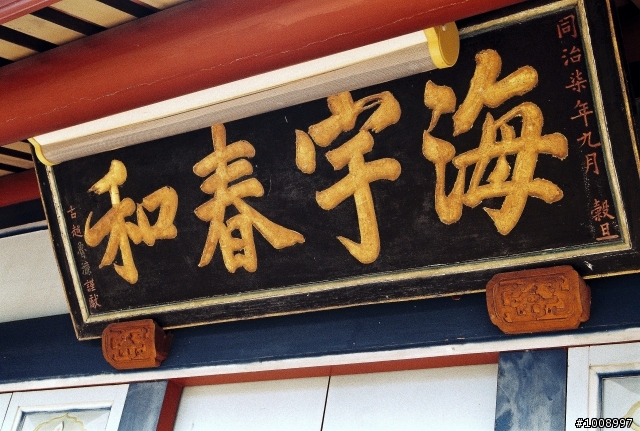 同治柒年九月 穀旦
海宇春和
古越 謹獻
#1008997